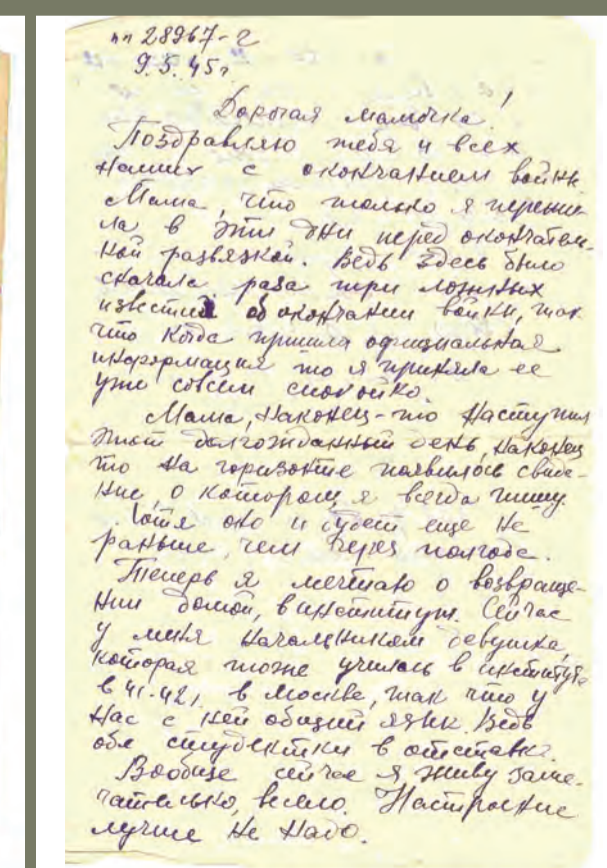 пп 28967-г
9.5.45г.
Дорогая мамочка!
Поздравляю тебя и всех
наших с окончанием войны.
Мама, что только я пережи-
ла в эти дни перед окончатель-
ной развязкой. Ведь здесь было
сначала раза три ложных
известия об окончании войны, так
что когда пришла официальная
информация то я приняла ее
уже совсем спокойно.
Мама, наконец-то наступил
этот долгожданный день, наконец
то на горизонте появилось свида-
ние, о котором я всегда пишу.
Хотя оно и будет еще не
раньше, чем через полгода.
Теперь я мечтаю о возвраще-
нии домой, в институт. Сейчас
у меня начальником девушка,
которая тоже училась в институте
в 41-42г. в Москве, так что у
нас с ней общий язык. Ведь
обе студентки в отставке.
Вообще сейчас я живу заме-
чательно, весело. Настроение
лучше не надо.